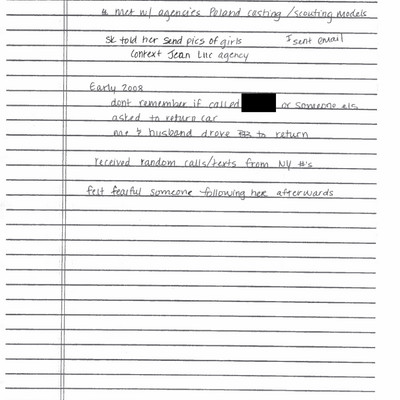 & met w/ agencies Poland casting/scouting models
SK told her send pics of girls I sent email
Context Jean Luc agency
Early 2008
dont remember if called or someone els
asked to return car
me & husband drove to return
received random calls/texts from NY #'s
felt fearful someone following her afterwards